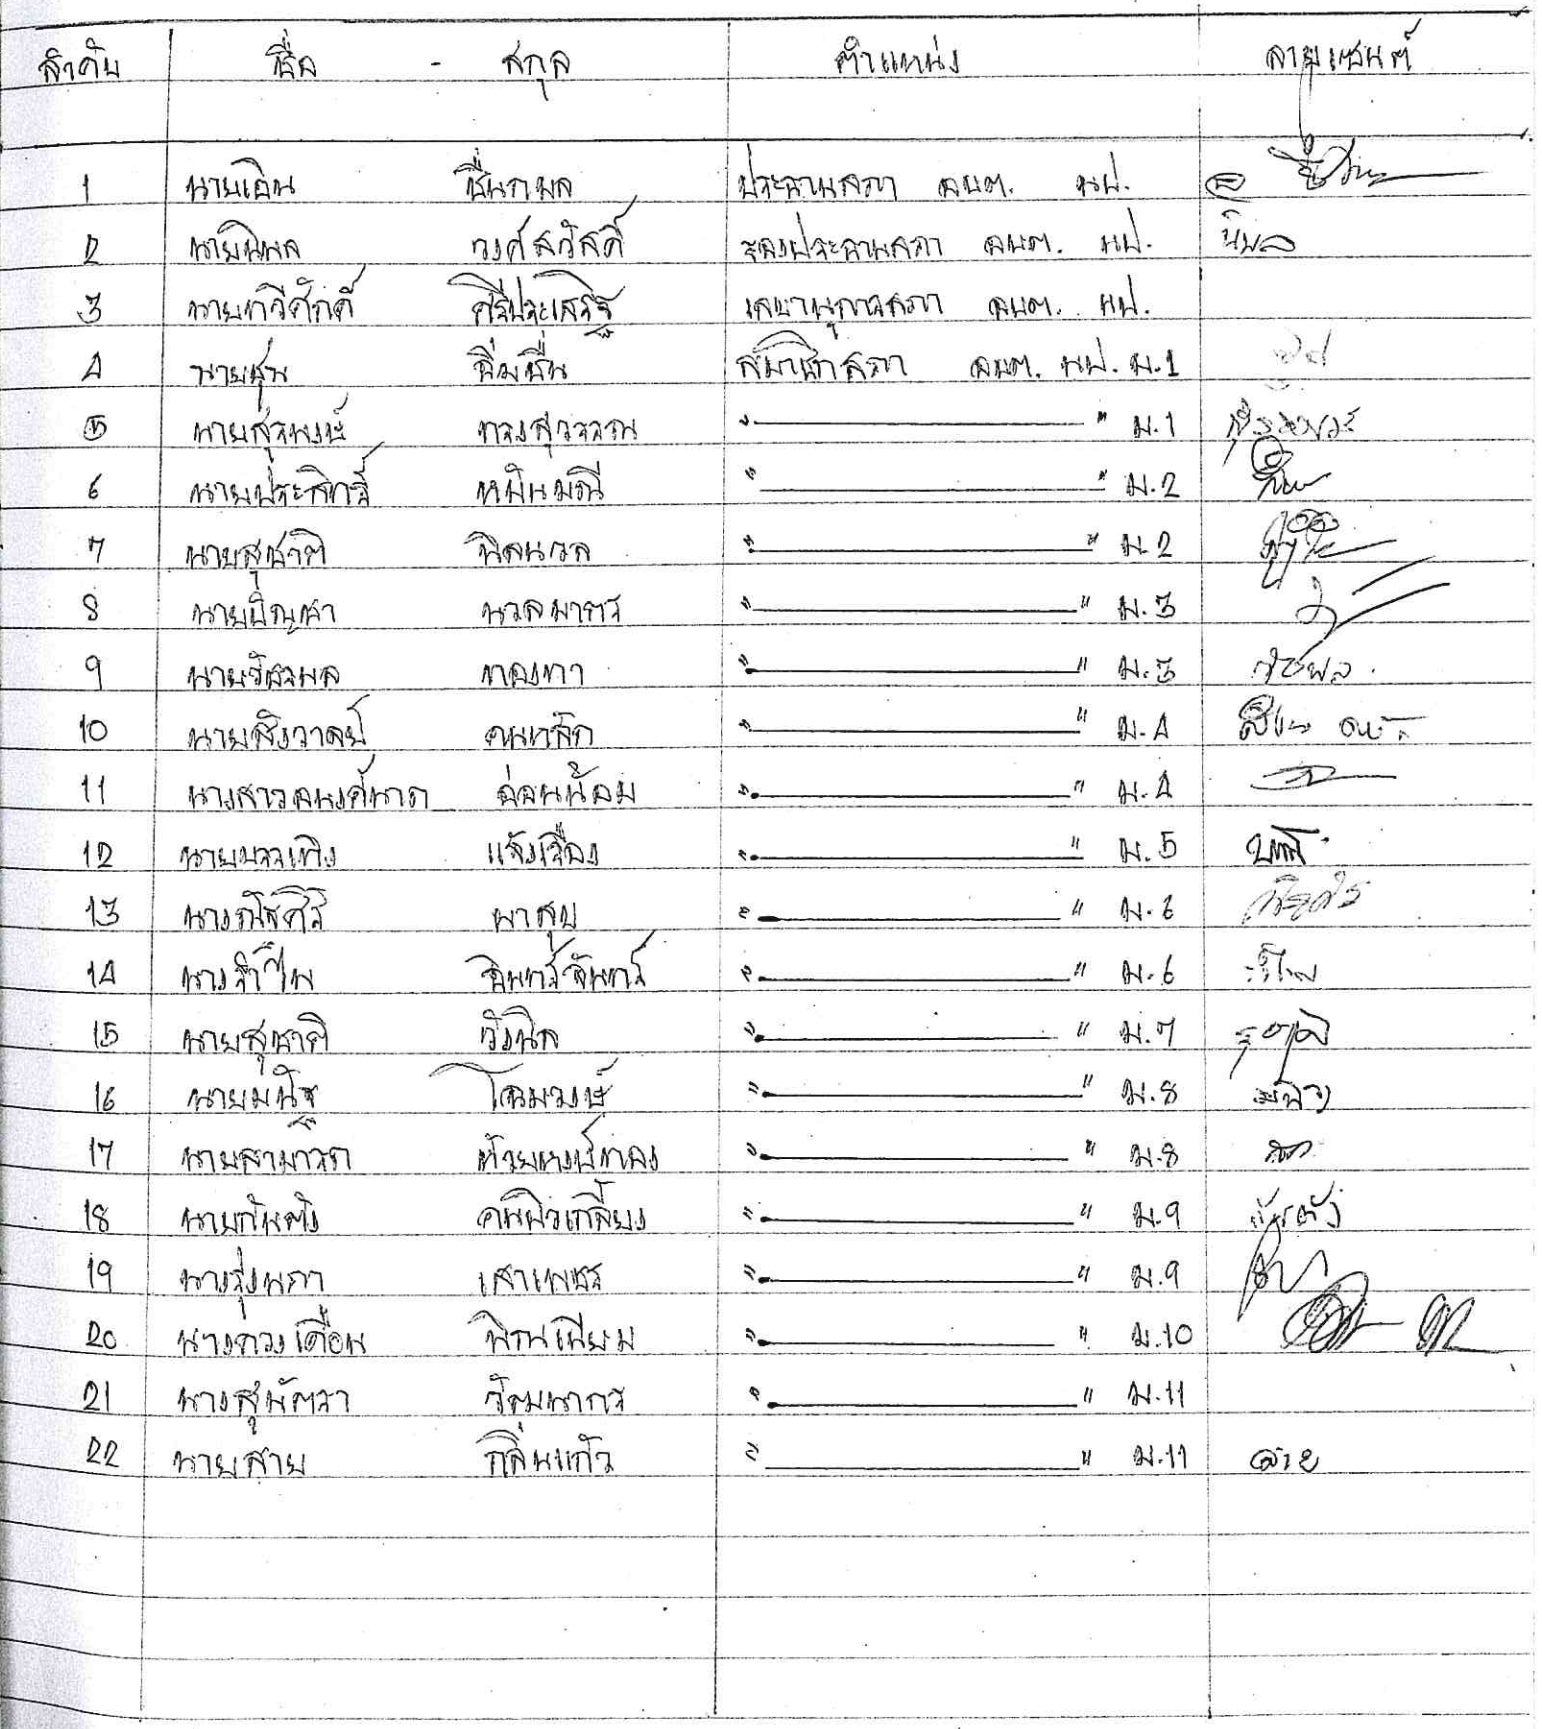 ลำดับ ชื่อ - สกุล ตำแหน่ง ลายเซนต์
1 นายเอิน ชื่นกมล ประธานสภา อบต. นป.
2 นายนิพล วงศ์สวัสดิ์ รองประธานสภา อบต. นป. นิพล
3 นายทวีศักดิ์ ศรีประเสริฐ เลขานุการสภา อบต. นป.
4 นายชุ่น อิ่มชื่น สมาชิกสภา อบต. นป. ม.1
5 นายสุรพงษ์ ทรงสุวรรณ " " ม.1
6 นายประสิทธิ์ หมื่นมณี " " ม.2
7 นายสุชาติ นิลนวล " " ม.2
8 นายปัญญา นวลมาตร " " ม.3
9 นายวัชรพล ทองทา " " ม.3
10 นายสังวาลย์ คนหลัก " " ม.4
11 นางสาวอนงค์นาถ อ่อนน้อม " " ม.4
12 นายบรรเทิง แจ้งเรื่อง " " ม.5
13 นางณัชศิริ ผาสุข " " ม.6
14 นางรำไพ อินทร์จันทร์ " " ม.6
15 นายสุชาติ วังนิล " " ม.7
16 นายมนัฐ โฉมวงษ์ " " ม.8
17 นายสามารถ ห้วยหงษ์ทอง " " ม.8
18 นายกันตัง คนผิวเกลี้ยง " " ม.9 กันตัง
19 นางรุ่งนภา เสาเพชร " " ม.9
20 นางดวงเดือน พิณเนียม " " ม.10
21 นางสุพัตรา วัฒนากร " " ม.11
22 นายสาย กลิ่นแก้ว " " ม.11 สาย